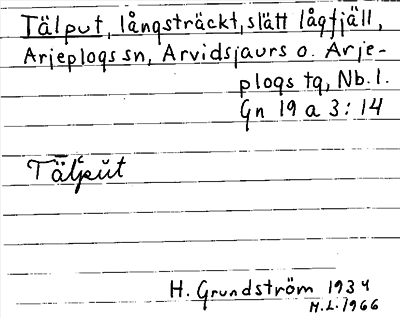 Tälput, långsträckt, slätt lågfjäll,
Arjeplogs sn, Arvidsjaurs o. Arje-
plogs tg, Nb. l.
Gn 19 a 3:14
H. Grundström 1934
M.L. 1966